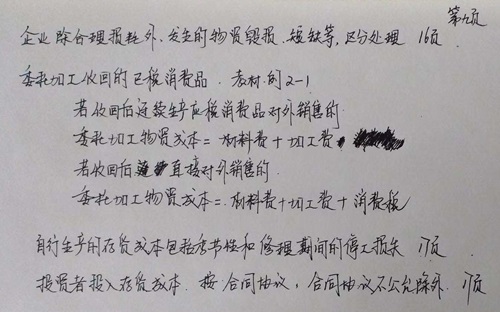 第九页
企业除合理损耗外、发生的物资毁损、短缺等,区分处理 16页
委托加工收回的已税消费品. 教材.例2-1
若收回后连续生产应税消费品对外销售的
委托加工物资成本=材料费+加工费
若收回后直接对外销售的.
委托加工物资成本=.材料费+加工费+消费税
自行生产的存货成本包括季节性和修理期间的停工损失 17页
投资者投入存货成本.按合同协议,合同协议不公允除外. 17页